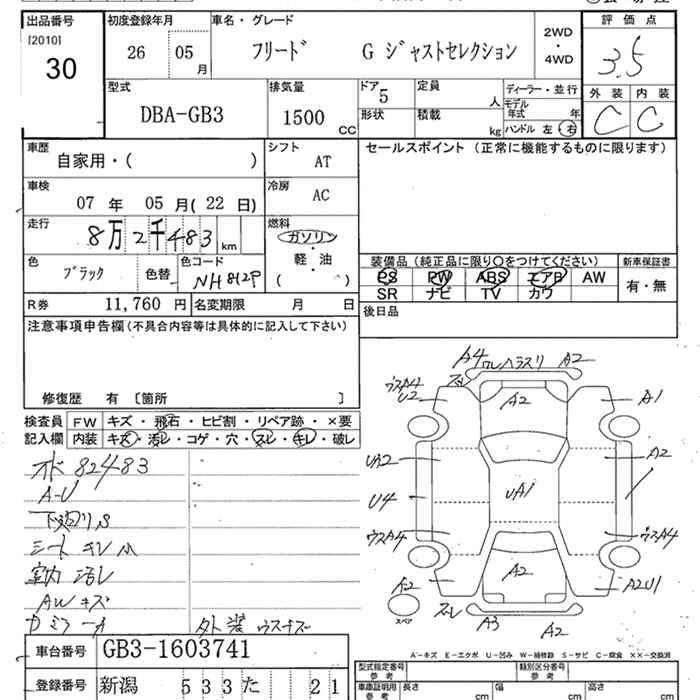 出品番号 初度登録年月 車名・グレード 評価点
[2010] 30 26 05月 フリード G ジャストセレクション 2WD・4WD 3.5
型式 排気量 ドア 定員 ディーラー・並行 外装 内装
DBA-GB3 1500CC 5 人 モデル年式 年 C C
形状 積載 kg ハンドル 左・右
車歴 シフト セールスポイント(正常に機能するものに限ります)
自家用・( ) AT
車検 冷房
07年 05月(22日) AC
走行 燃料
8万2千483 km ガソリン・軽・油 ( )
装備品(純正品に限り○をつけてください) 新車保証書
色 色替 色コード
ブラック NH812P
PS PW ABS エアB AW 有・無
SR ナビ TV カワ
R券 11,760円 名変期限 月 日 後日品
注意事項申告欄(不具合内容等は具体的に記入して下さい)
修復歴 有 〔箇所 〕
検査員記入欄 FW キズ・飛石・ヒビ割・リペア跡・×要
内装 キズ・汚レ・コゲ・穴・スレ・キレ・破レ
82483
A-U
シート キレ
室内 汚レ
AWキズ
外装 ウスキズ
A4 A2
ウスA4
U2 A2 A1
UA2 A2
U4 UA1
ウスA4 ウスA4
A2 A2 A2U1
スペア
A3 A2
A-キズ E-エクボ U-凹み W-補修跡 S-サビ C-腐食 ××-交換済
車台番号 GB3-1603741
登録番号 新潟 533 た 21
型式指定番号 参考 類別区分番号 参考
車庫証明用 参考 長さ cm 幅 cm 高さ cm